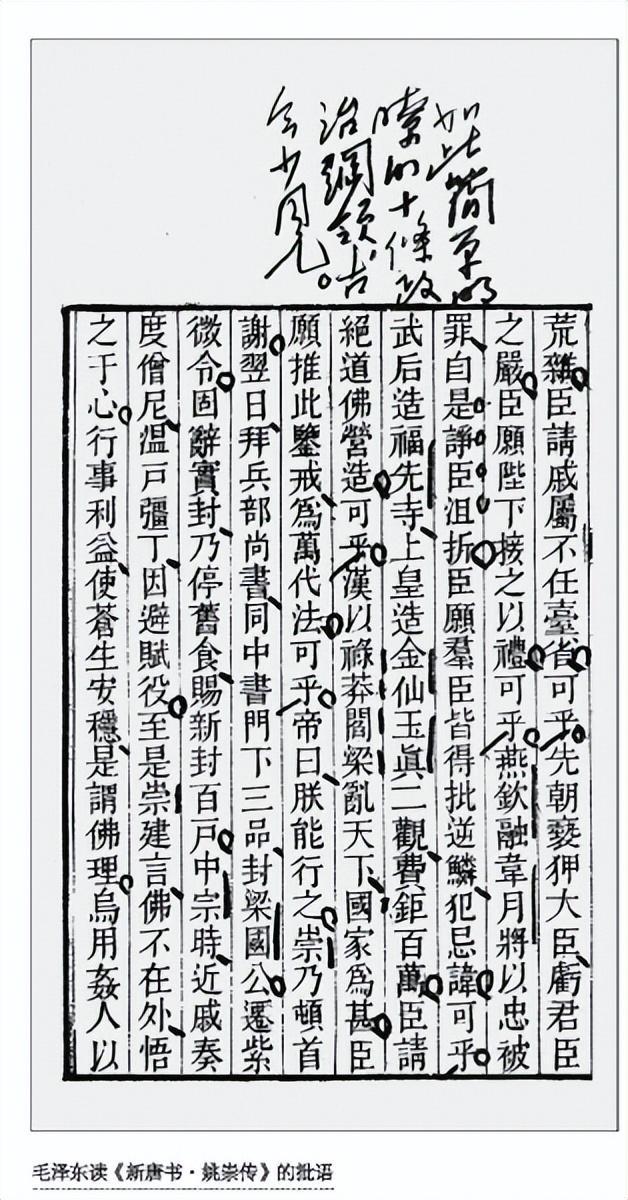 如此簡单明
瞭的十條政
治綱領，古
今少見。
荒雜臣請戚屬不任臺省可乎先朝褻狎大臣虧君臣
之嚴臣願陛下接之以禮可乎燕欽融韋月將以忠被
罪自是諍臣沮折臣願羣臣皆得批逆鱗犯忌諱可乎
武后造福先寺上皇造金仙玉眞二觀費鉅百萬臣請
絕道佛營造可乎漢以祿莽閻梁亂天下國家爲甚臣
願推此鑒戒爲萬代法可乎帝曰朕能行之崇乃頓首
謝翌日拜兵部尚書同中書門下三品封梁國公遷紫
微令固辭實封乃停舊食賜新封百戶中宗時近戚奏
度僧尼温戶彊丁因避賦役至是崇建言佛不在外悟
之于心行事利益使蒼生安穩是謂佛理烏用姦人以
毛泽东读《新唐书·姚崇传》的批语